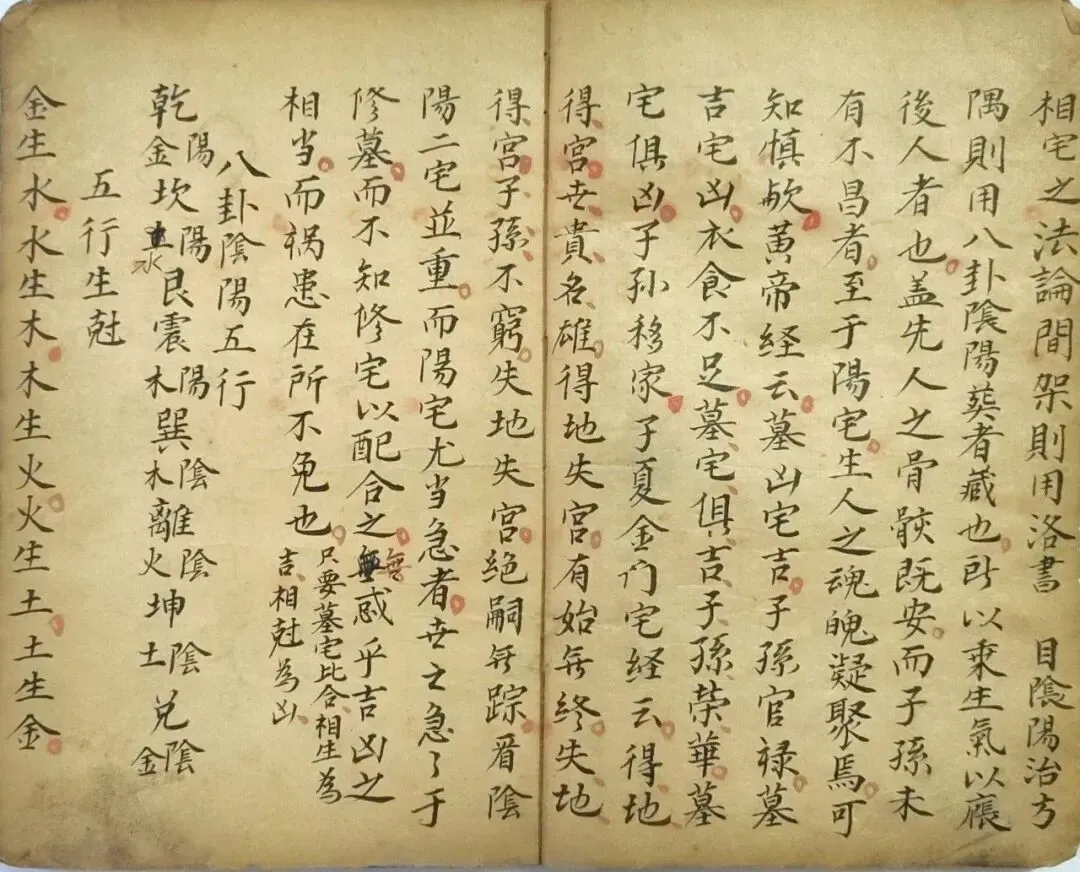 相宅之法論間架則用洛書 目陰陽治方
隅則用八卦陰陽葬者藏也所以乘生氣以廕
後人者也盖先人之骨骸既安而子孫未
有不昌者至于陽宅生人之魂魄凝聚焉可
知慎欤黄帝経云墓凶宅吉子孫官禄墓
吉宅凶衣食不足墓宅俱吉子孫荣華墓
宅俱凶子孙移家子夏金门宅経云得地
得宫世貴名雄得地失宫有始无终失地
得宫子孫不窮失地失宫绝嗣无踪看陰
陽二宅並重而陽宅尤当急者世之急了于
修墓而不知修宅以配合之無惑乎吉凶之
相当而祸患在所不免也 只要墓宅比合相生為
吉相尅為凶
八卦陰陽五行
乾陽金坎陽水艮震陽木巽陰木離陰火坤陰土兑陰金
五行生尅
金生水水生木木生火火生土土生金